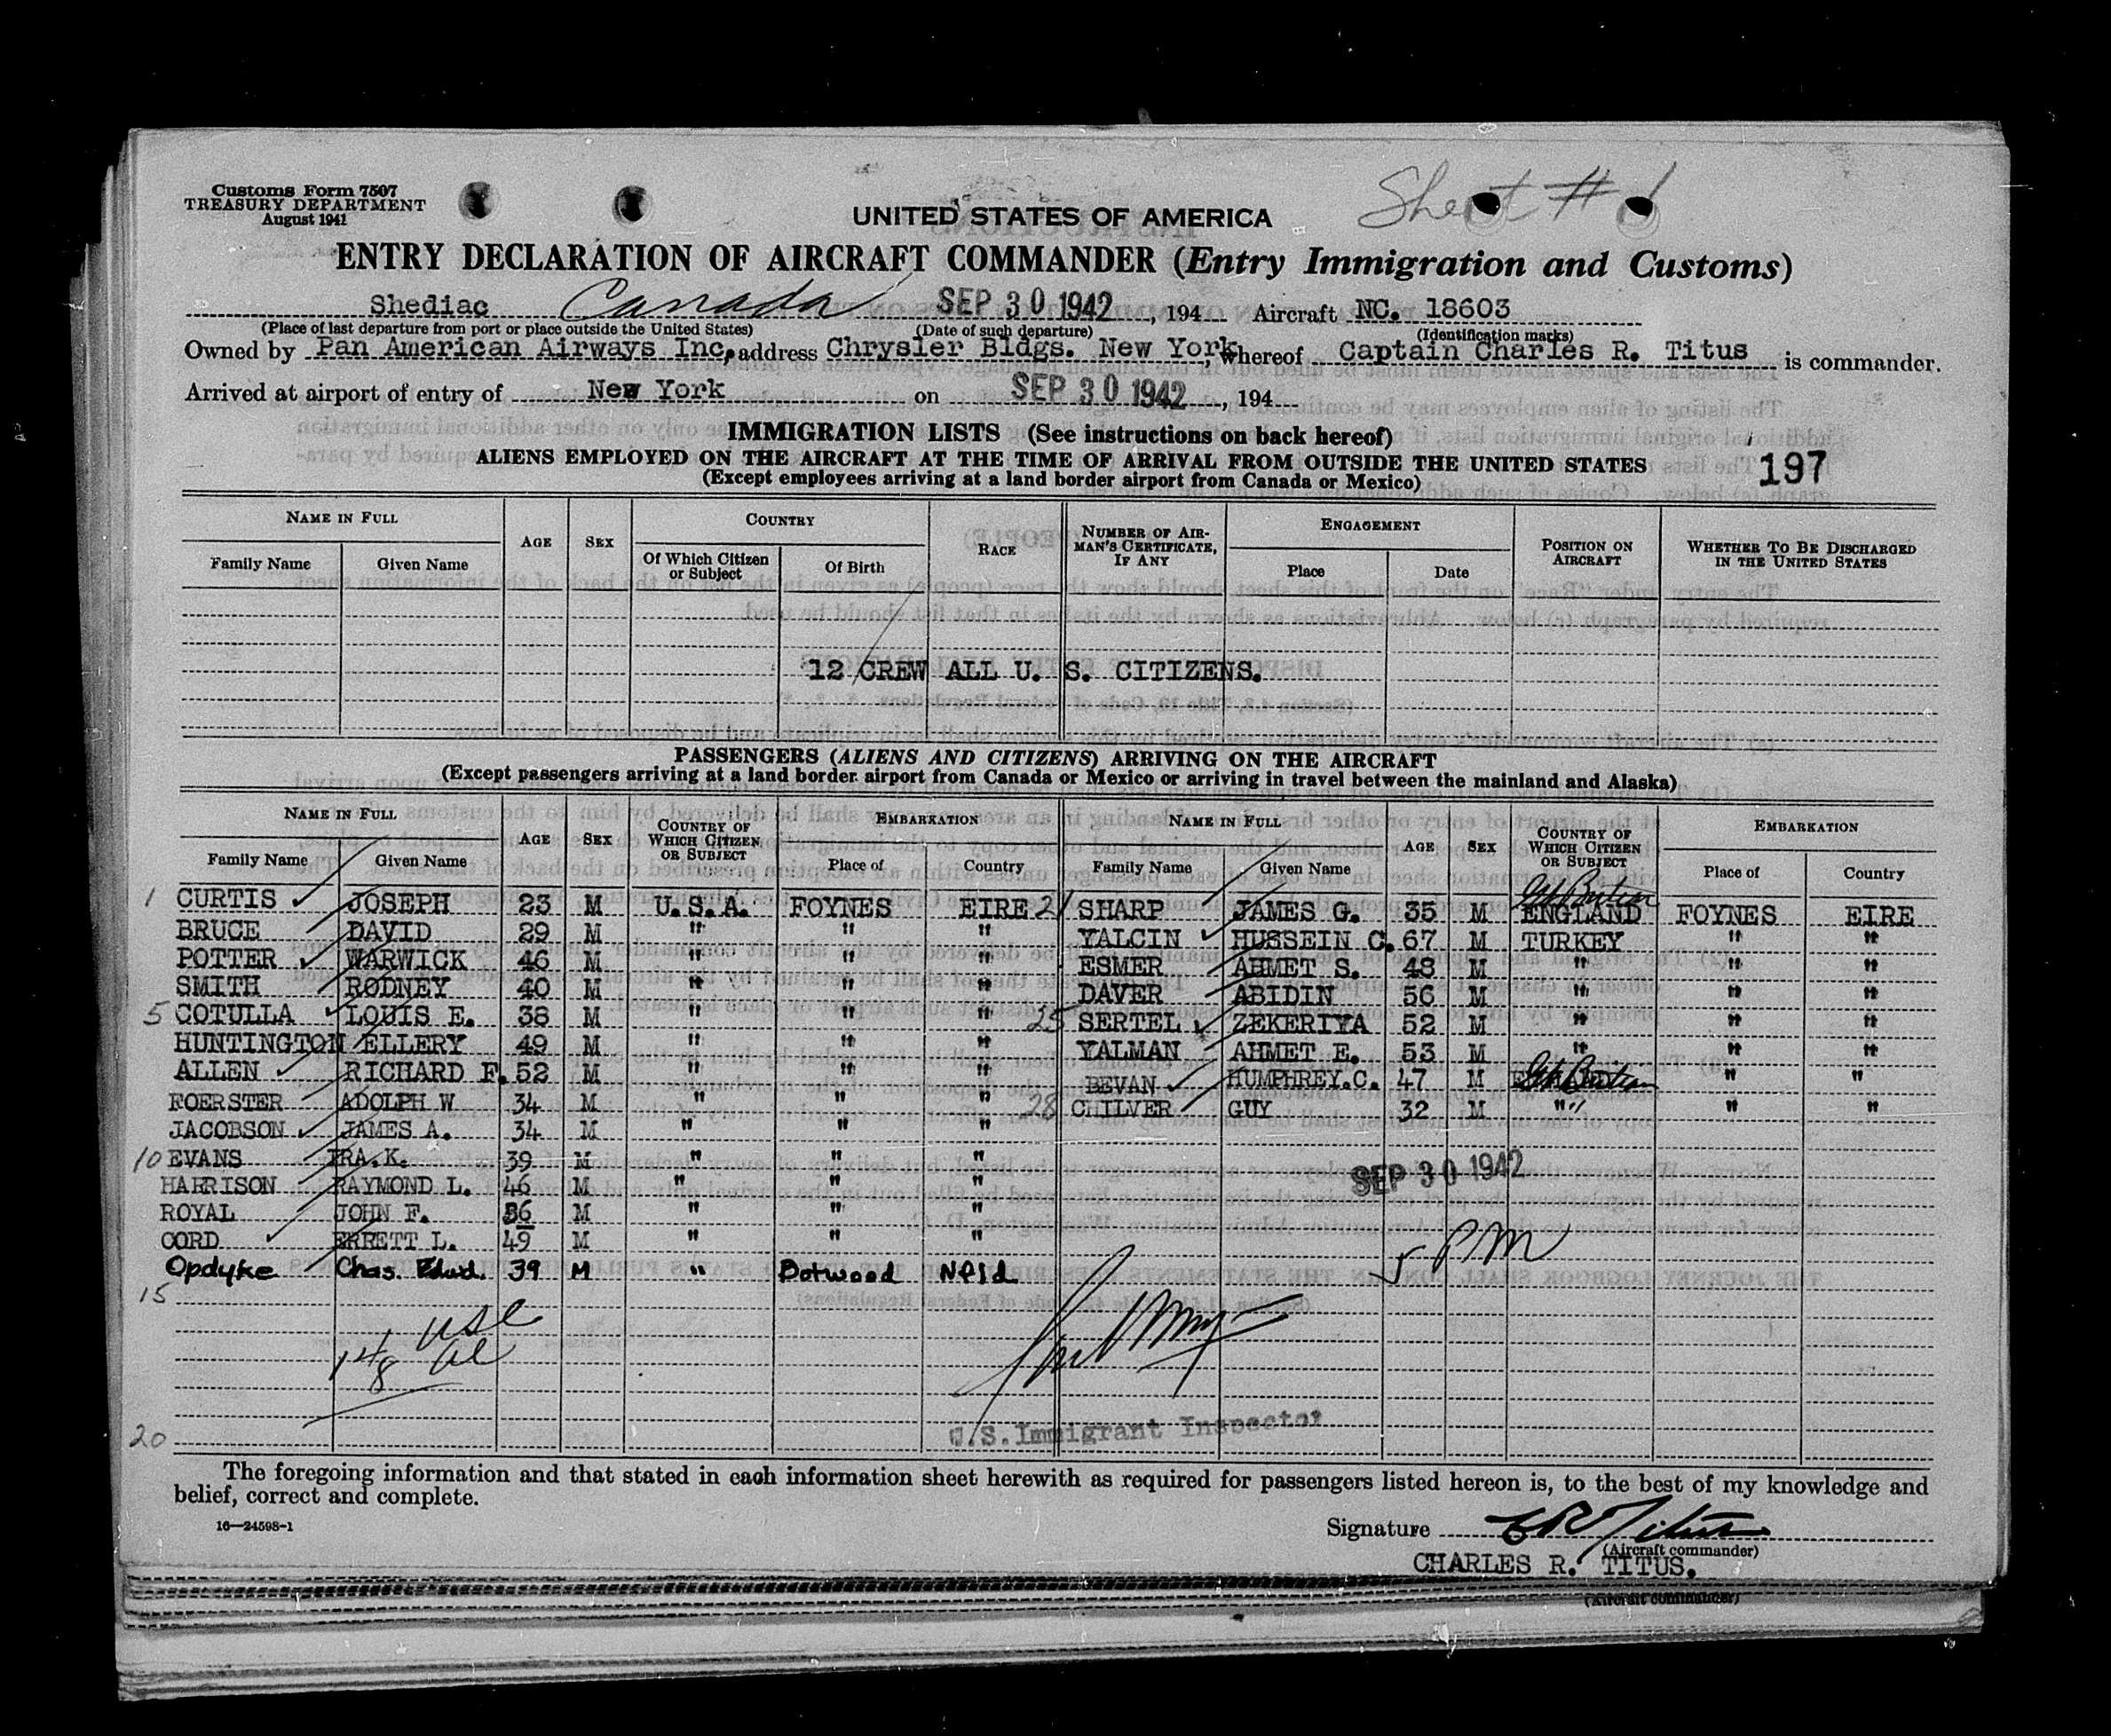 Customs Form 7507
TREASURY DEPARTMENT
August 1941
Sheet # 1
UNITED STATES OF AMERICA
ENTRY DECLARATION OF AIRCRAFT COMMANDER (Entry Immigration and Customs)
Shediac Canada SEP 30 1942, 194 Aircraft NC. 18603
(Place of last departure from port or place outside the United States) (Date of such departure) (Identification marks)
Owned by Pan American Airways Inc, address Chrysler Bldgs. New York, whereof Captain Charles R. Titus is commander.
Arrived at airport of entry of New York on SEP 30 1942, 194
IMMIGRATION LISTS (See instructions on back hereof)
ALIENS EMPLOYED ON THE AIRCRAFT AT THE TIME OF ARRIVAL FROM OUTSIDE THE UNITED STATES
(Except employees arriving at a land border airport from Canada or Mexico)
197
NAME IN FULL AGE SEX COUNTRY RACE NUMBER OF AIRMAN'S CERTIFICATE, IF ANY ENGAGEMENT POSITION ON AIRCRAFT WHETHER TO BE DISCHARGED IN THE UNITED STATES
Family Name Given Name Of Which Citizen or Subject Of Birth Place Date
12 CREW ALL U. S. CITIZENS.
PASSENGERS (ALIENS AND CITIZENS) ARRIVING ON THE AIRCRAFT
(Except passengers arriving at a land border airport from Canada or Mexico or arriving in travel between the mainland and Alaska)
NAME IN FULL AGE SEX COUNTRY OF WHICH CITIZEN OR SUBJECT EMBARKATION NAME IN FULL AGE SEX COUNTRY OF WHICH CITIZEN OR SUBJECT EMBARKATION
Family Name Given Name Place of Country Family Name Given Name Place of Country
1 CURTIS JOSEPH 23 M U.S.A. FOYNES EIRE 21 SHARP JAMES G. 35 M Gt Britain ENGLAND FOYNES EIRE
BRUCE DAVID 29 M " " " YALCIN HUSSEIN C. 67 M TURKEY " "
POTTER WARWICK 46 M " " " ESMER AHMET S. 48 M " " "
SMITH RODNEY 40 M " " " DAVER ABIDIN 56 M " " "
5 COTULLA LOUIS E. 38 M " " " 25 SERTEL ZEKERIYA 52 M " " "
HUNTINGTON ELLERY 49 M " " " YALMAN AHMET E. 53 M " " "
ALLEN RICHARD F. 52 M " " " BEVAN HUMPHREY.C. 47 M Gt Britain " "
FOERSTER ADOLPH W 34 M " " " 28 CHILVER GUY 32 M " " "
JACOBSON JAMES A. 34 M " " "
10 EVANS IRA.K. 39 M " " "
HARRISON RAYMOND L. 46 M " " "
SEP 30 1942
ROYAL JOHN F. 56 M " " "
CORD ERRETT L. 49 M " " "
5 PM
Opdyke Chas. Edwd. 39 M " Botwood Nfld
15
14 USC
8 al
20
U.S. Immigrant Inspector
The foregoing information and that stated in each information sheet herewith as required for passengers listed hereon is, to the best of my knowledge and
belief, correct and complete.
16—24598-1
Signature CR Titus
(Aircraft commander)
CHARLES R. TITUS.
(Aircraft commander)